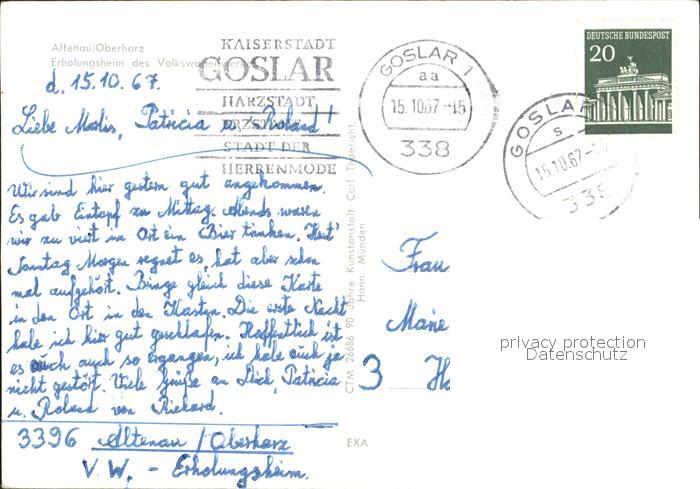 Altenau/Oberharz
Erholungsheim des Volkswagenwerkes
KAISERSTADT
GOSLAR
HARZSTADT
ERZSTADT
STADT DER
HERRENMODE
GOSLAR 1
aa
15.10.67-15
338
DEUTSCHE BUNDESPOST
20
GOSLAR
s
15.10.67-
338
d. 15.10.67.
Liebe Marlis, Patricia u. Roland!
Wir sind hier gestern gut angekommen.
Es gab Eintopf zu Mittag. Abends waren
wir zu viert im Ort ein Bier trinken. Heut'
Sonntag Morgen regnet es, hat aber schon
mal aufgehört. Bringe gleich diese Karte
in den Ort in den Kasten. Die erste Nacht
habe ich hier gut geschlafen. Hoffentlich ist
es euch auch so ergangen, ich habe euch ja
nicht gestört. Viele Grüße an Dich, Patricia
u. Roland von Rickard.
3396 Altenau/Oberharz
V.W. - Erholungsheim.
CTM 26686 90 Jahre Kunstanstalt Carl
Hann. Münden
EXA
Frau
Marie
3 H
privacy protection
Datenschutz